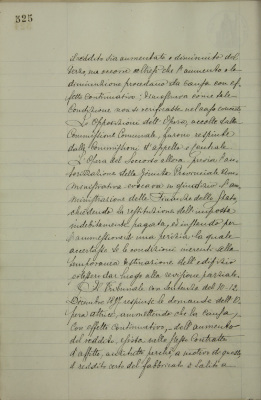 325
il reddito sia aumentato o diminuito del
terzo, ma occorre altresì che l'aumento o la
diminuzione procedano da causa con ef-
fetto continuativo; dimostrava come tale
condizione non si verificasse nel caso concreto
Le Opposizioni dell'Opera, accolte dalla
Commissione Comunale, furono respinte
dalle Commissioni d'appello e Centrale
L'Opera del Soccorso allora, previa l'au-
torizzazione della Giunta Provinciale Am-
ministrativa conveniva in giudizio l'Am-
ministrazione delle Finanze dello Stato,
chiedendo la restituzione dell'imposta
indebitamente pagata, ed instando per
l'ammissione di una perizia la quale
accertasse se le condizioni inerenti alla
importanza e situazione dell'edificio
potessero dar luogo alla revisione parziale.
Il Tribunale con sentenza del 10-12
Dicembre 1897 respinse la domanda dell'O-
pera attrice, ammettendo che la causa,
con effetto continuativo, dell'aumento
del reddito, esista nello stesso Contratto
d'affitto, anzitutto perché, a motivo di questo
il reddito certo del fabbricato è salito a